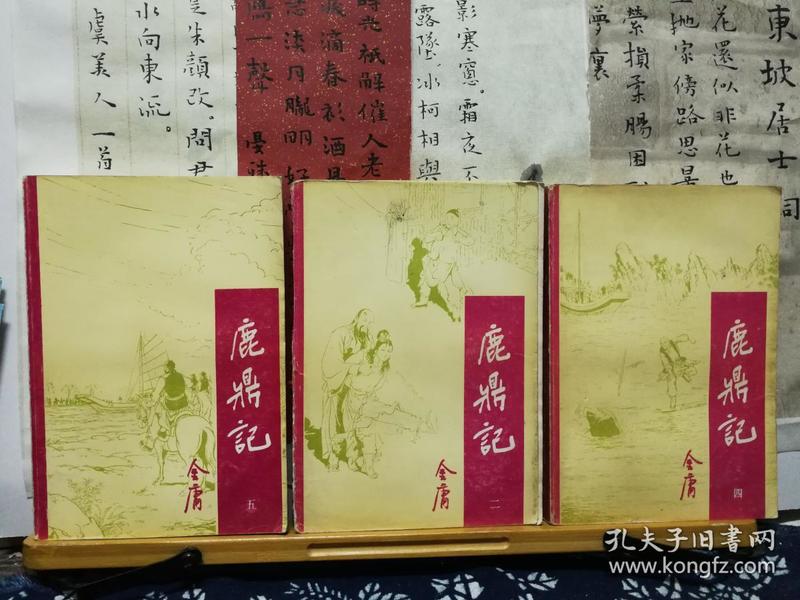 東坡居士 詞
花還似非花也
拋家傍路思量
縈損柔腸困
夢裏
影寒窻。霜夜不
露墜冰柯相與
時光祇解催人老
滴春衫酒
淡月朧明好
一聲
是朱顏改。問君
水向東流。
虞美人一首
鹿鼎記
金庸
五
鹿鼎記
金庸
二
鹿鼎記
金庸
四
孔夫子旧书网
www.kongfz.com